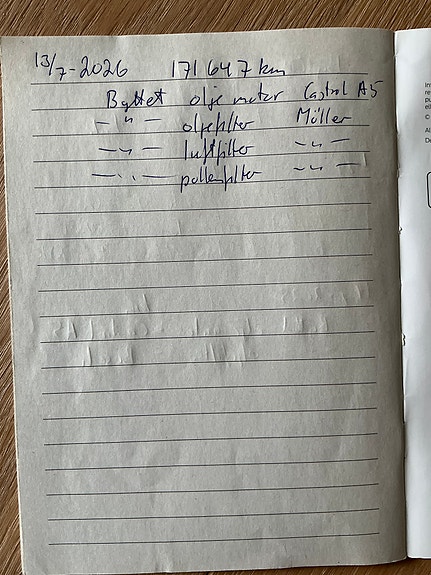 13/7-2026 171 647 km
Byttet olje motor Castrol A5
— " — oljefilter Möller
— " — luftfilter — " —
— " — pollenfilter — " —